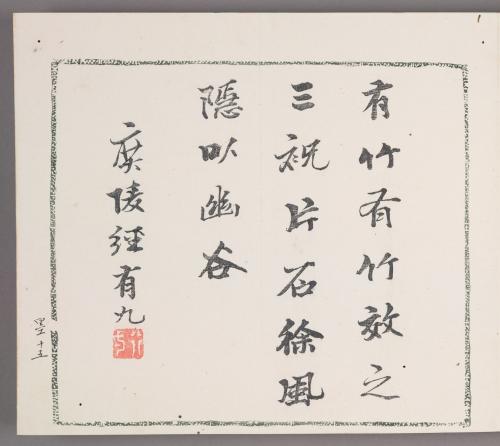 有竹有竹效之
三祝片石徐風
隱以幽谷
廣陵經有九
十五